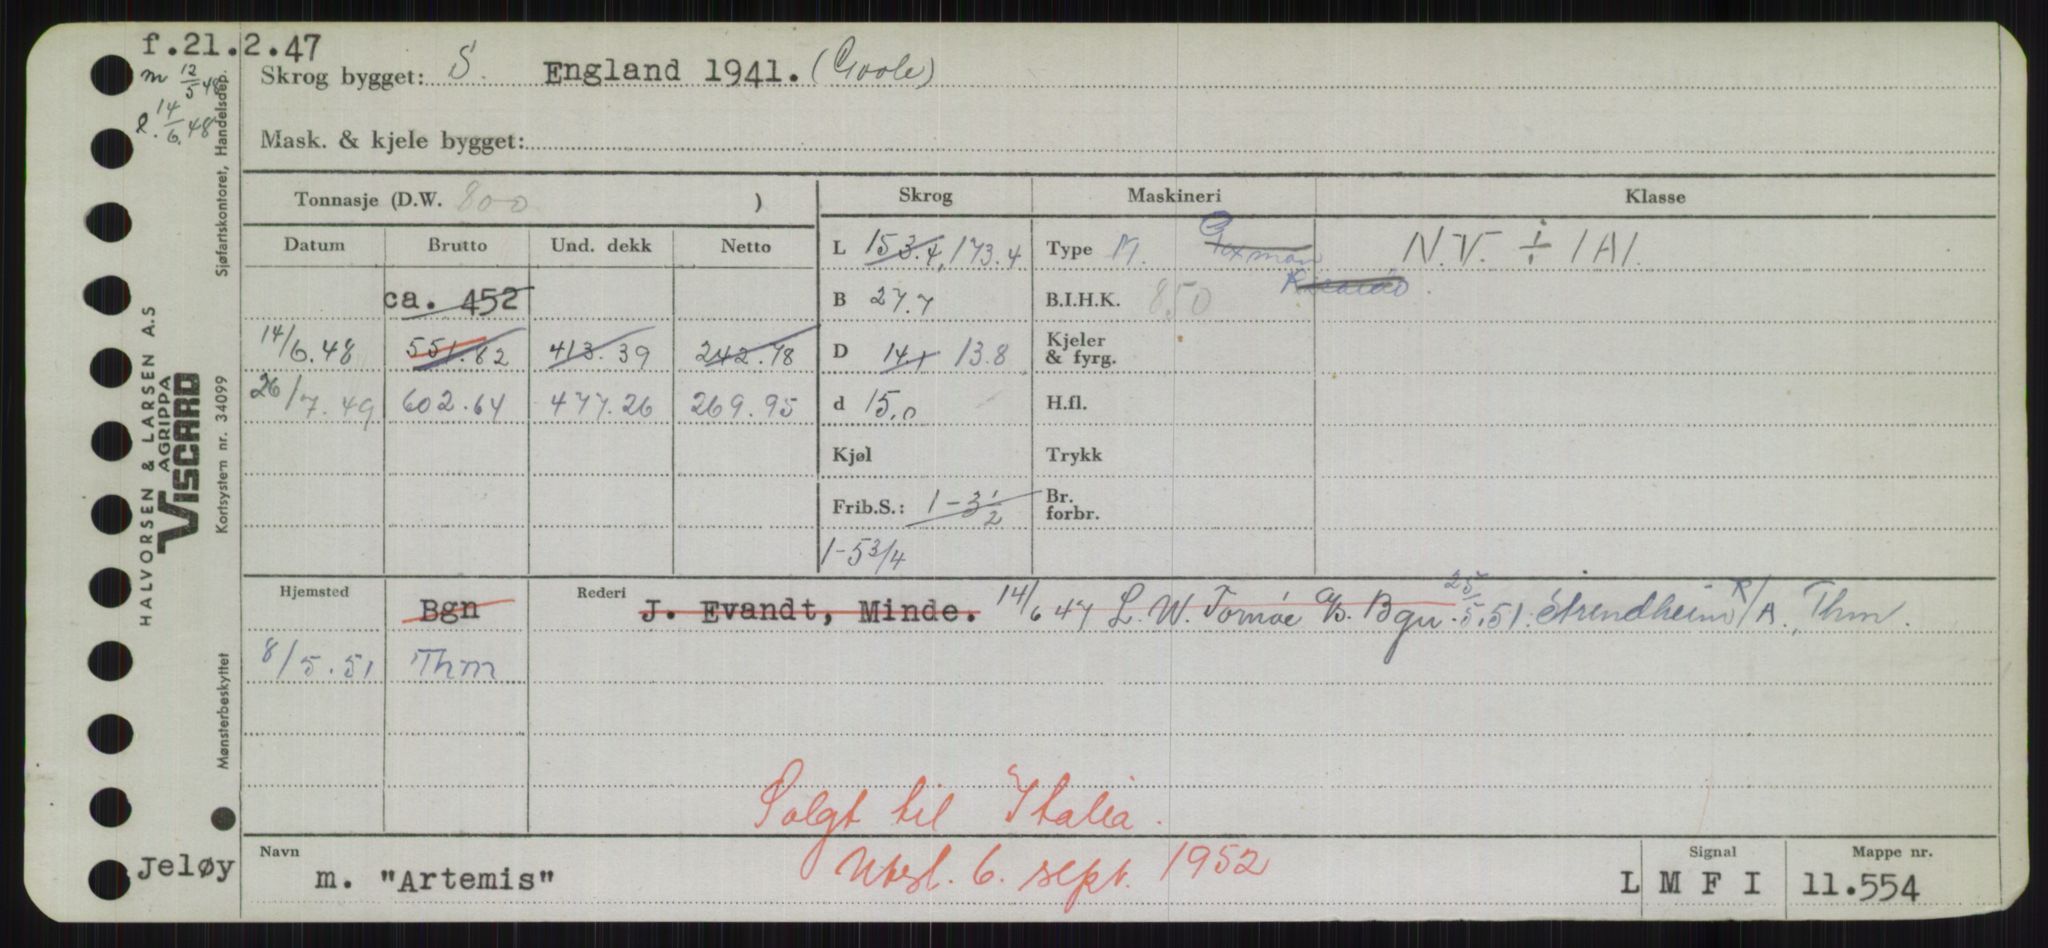 f.21.2.47
m 12/5 48
l. 14/6. 48
Skrog bygget: S. England 1941. (Goole)
Mask. & kjele bygget:
Tonnasje (D.W. 800 )
Skrog Maskineri Klasse
Datum Brutto Und. dekk Netto
L 153.4, 173.4 Type M. N.V. ÷ 1A1.
ca. 452
B 27.7 B.I.H.K. 850
14/6.48 551.82 413.39 242.78
D 14.1 13.8 Kjeler & fyrg.
26/7.49 602.64 477.26 269.95
d 15.0 H.fl.
Kjøl Trykk
Frib.S.: 1-3 1/2 Br. forbr.
1-5 3/4
Hjemsted Bgn Rederi J. Evandt, Minde. 14/6 47 L. W. Tornøe A/S. Bgn. 25/5.51. Strendheim R/A., Thm.
8/5.51 Thm
Solgt til Italia.
Utsl. 6. sept. 1952
Navn m. "Artemis"
Signal L M F I
Mappe nr. 11.554
Jeløy
HALVORSEN & LARSEN A.S
AGRIPPA
VISCARD
Sjøfartskontoret, Handelsdep.
Kortsystem nr. 34099
Mønsterbeskyttet